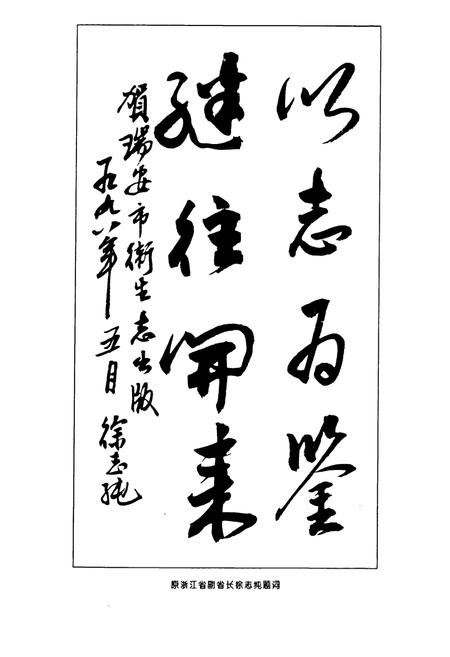 以志为鉴
继往開来
賀瑞安市衛生志出版
一九九八年五月 徐志纯
原浙江省副省长徐志纯题词